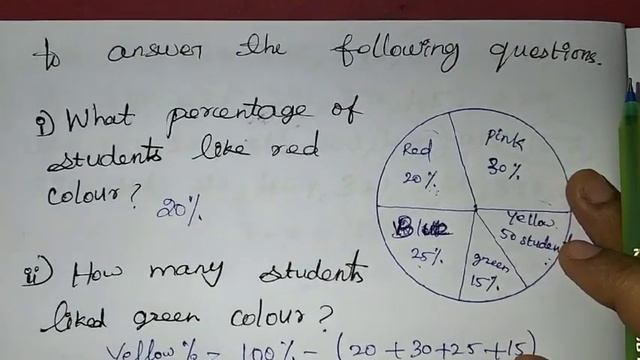 to answer the following questions.
i) What percentage of
students like red
colour? 20%
ii) How many students
liked green colour?
Yellow % = 100% - (20 + 30 + 25 + 15)
Red
20%
Pink
30%
Yellow
50 student
green
15%
Blue
25%